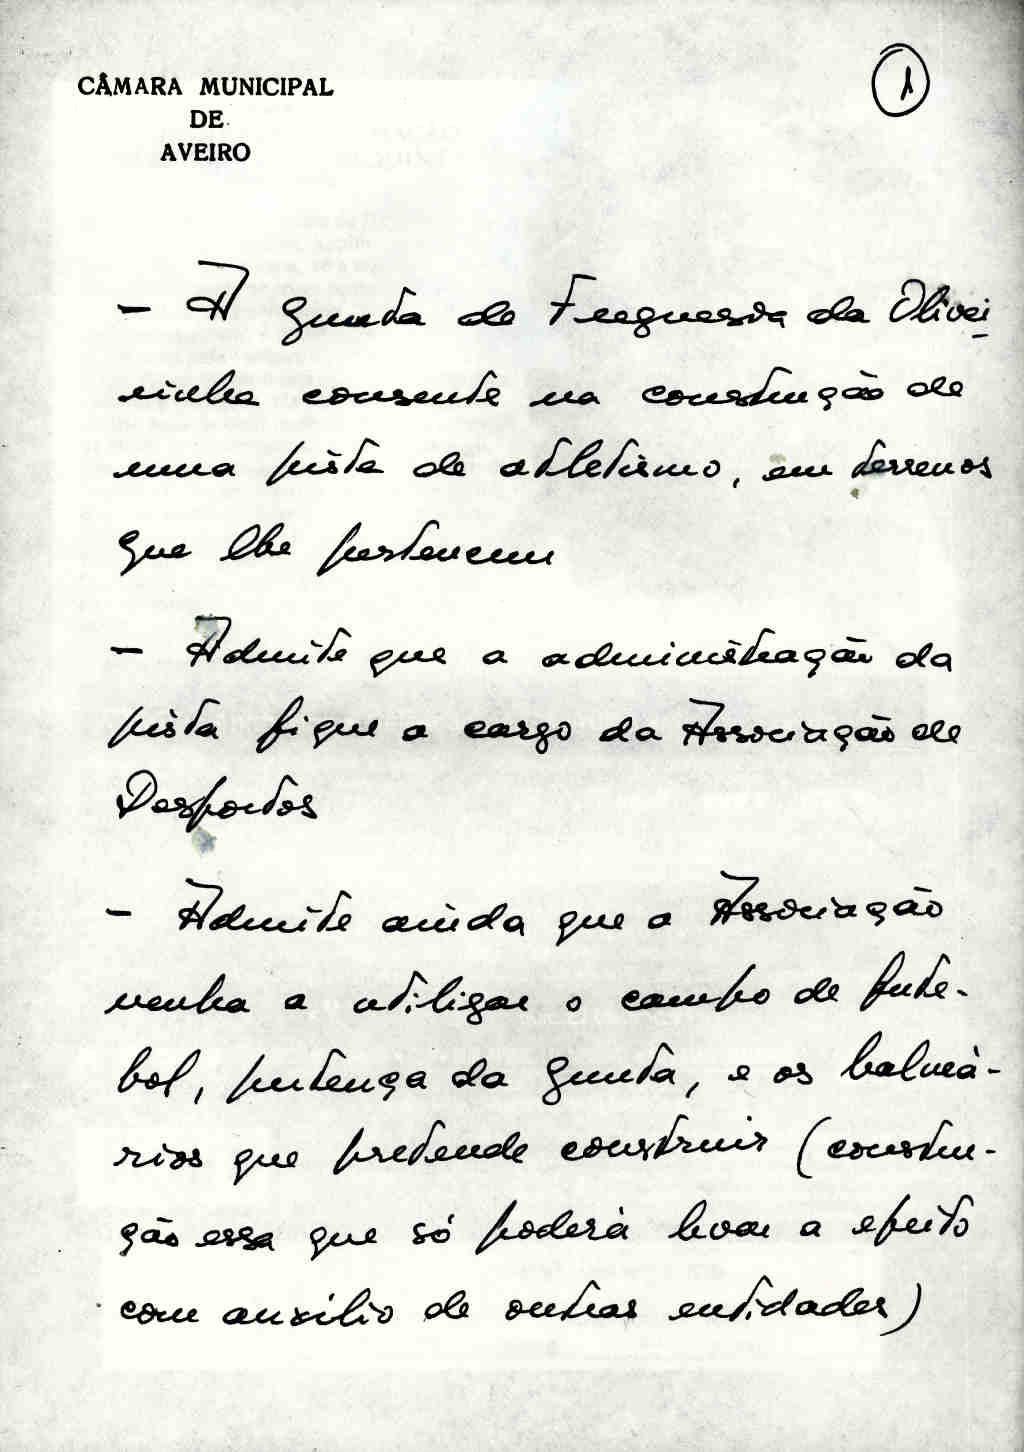 CÂMARA MUNICIPAL
DE
AVEIRO
1
- A Junta de Freguesia da Olivei
rinha consente na construção de
uma pista de atletismo, em terrenos
que lhe pertencem
- Admite que a administração da
pista fique a cargo da Associação de
Desportos
- Admite ainda que a Associação
venha a utilizar o campo de fute-
bol, pertença da Junta, e os balneá-
rios que pretende construir (constru-
ção essa que só poderá levar a efeito
com auxílio de outras entidades)